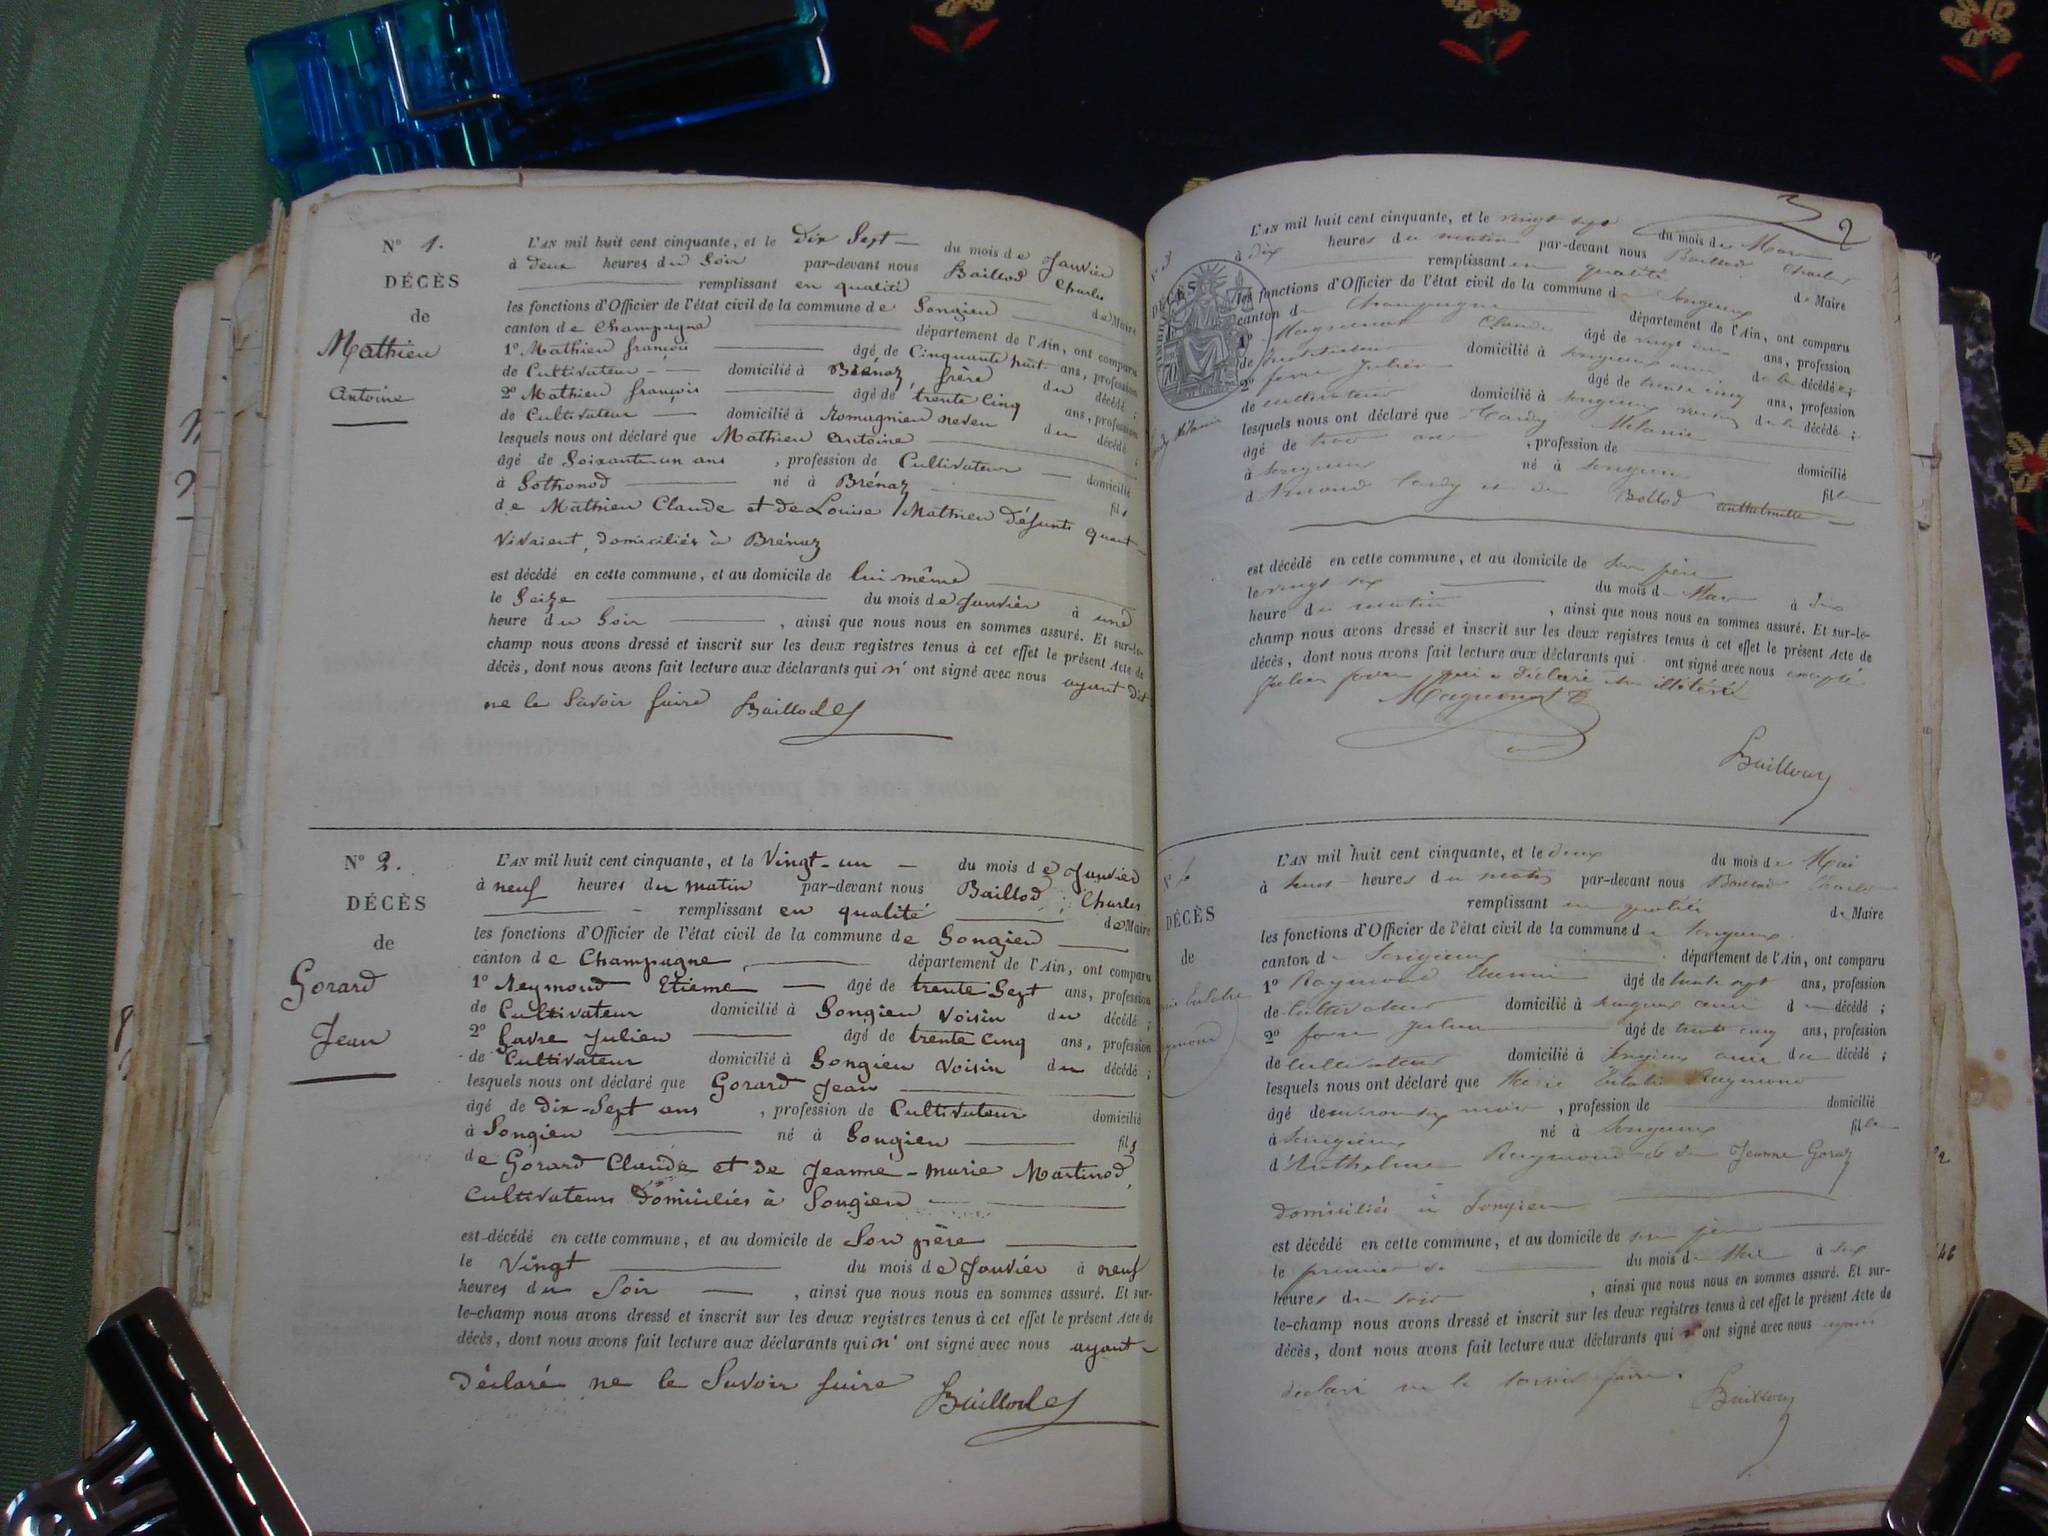 N° 1.
DÉCÈS
de
Mathieu
Antoine
L'AN mil huit cent cinquante, et le dix Sept du mois de Janvier
à deux heures du Soir par-devant nous Baillod Charles
remplissant en qualité de Maire
les fonctions d'Officier de l'état civil de la commune de Songieu
canton de Champagne département de l'Ain, ont comparu
1° Mathieu françois âgé de Cinquante huit ans, profession
de Cultivateur domicilié à Brénaz, frère du décédé ;
2° Mathieu françois âgé de trente Cinq ans, profession
de Cultivateur domicilié à Romagnieu neveu du décédé ;
lesquels nous ont déclaré que Mathieu Antoine
âgé de Soixante-un ans , profession de Cultivateur domicilié
à Sothonod né à Brénaz fils
de Mathieu Claude et de Louise Mathieu défunts quant
vivaient, domiciliés à Brénaz
est décédé en cette commune, et au domicile de lui-même
le Seize du mois de Janvier à une
heure du Soir , ainsi que nous nous en sommes assuré. Et sur-le-
champ nous avons dressé et inscrit sur les deux registres tenus à cet effet le présent Acte de
décès, dont nous avons fait lecture aux déclarants qui n' ont signé avec nous ayant dit
ne le Savoir faire Baillod
N° 2.
DÉCÈS
de
Gorard
Jean
L'AN mil huit cent cinquante, et le Vingt-un du mois de Janvier
à neuf heures du matin par-devant nous Baillod Charles
remplissant en qualité de Maire
les fonctions d'Officier de l'état civil de la commune de Songieu
canton de Champagne, département de l'Ain, ont comparu
1° Reymond Etienne âgé de trente Sept ans, profession
de Cultivateur domicilié à Songieu Voisin du décédé ;
2° favre Julien âgé de trente Cinq ans, profession
de Cultivateur domicilié à Songieu Voisin du décédé ;
lesquels nous ont déclaré que Gorard Jean
âgé de dix-Sept ans , profession de Cultivateur domicilié
à Songieu né à Songieu fils
de Gorard Claude et de Jeanne-Marie Martinod,
Cultivateurs Domiciliés à Songieu
est décédé en cette commune, et au domicile de Son père
le Vingt du mois de Janvier à neuf
heures du Soir , ainsi que nous nous en sommes assuré. Et sur-
le-champ nous avons dressé et inscrit sur les deux registres tenus à cet effet le présent Acte de
décès, dont nous avons fait lecture aux déclarants qui n' ont signé avec nous ayant
Déclaré ne le Savoir faire Baillod
2
DÉCÈS
L'AN mil huit cent cinquante, et le vingt sept du mois de Mars
à dix heures du matin par-devant nous Baillod Charles
remplissant en qualité de Maire
les fonctions d'Officier de l'état civil de la commune de Songieux
canton de Champagne département de l'Ain, ont comparu
1° Claude âgé de vingt ans, profession
de instituteur domicilié à Songieux ami de la décédée ;
2° favre Julien âgé de trente cinq ans, profession
de cultivateur domicilié à Songieux voisin de la décédé ;
lesquels nous ont déclaré que Mélanie
âgé de trois ans , profession de domicilié
à Songieux né à Songieux fille
d et de Bollod anthelmette
est décédé en cette commune, et au domicile de son père
le vingt six du mois de Mars à dix
heure du matin , ainsi que nous nous en sommes assuré. Et sur-le-
champ nous avons dressé et inscrit sur les deux registres tenus à cet effet le présent Acte de
décès, dont nous avons fait lecture aux déclarants qui ont signé avec nous excepté
Julien favre qui a déclaré être illitéré
Baillod
DÉCÈS
de
L'AN mil huit cent cinquante, et le deux du mois de Mai
à huit heures du matin par-devant nous Baillod Charles
remplissant en qualité de Maire
les fonctions d'Officier de l'état civil de la commune de Songieux
canton de Songieux département de l'Ain, ont comparu
1° Raymond Etienne âgé de trente sept ans, profession
de Cultivateur domicilié à Songieux ami du décédé ;
2° favre Julien âgé de trente cinq ans, profession
de Cultivateur domicilié à Songieux ami du décédé ;
lesquels nous ont déclaré que Marie Raymond
âgé de mois , profession de domicilié
à Songieux né à Songieux fille
d'Anthelme Raymond et de Jeanne Goraz
domiciliés à Songieu
est décédé en cette commune, et au domicile de son père
le premier du mois de Mai à six
heures du soir , ainsi que nous nous en sommes assuré. Et sur-
le-champ nous avons dressé et inscrit sur les deux registres tenus à cet effet le présent Acte de
décès, dont nous avons fait lecture aux déclarants qui n' ont signé avec nous ayant
déclaré ne le savoir faire. Baillod